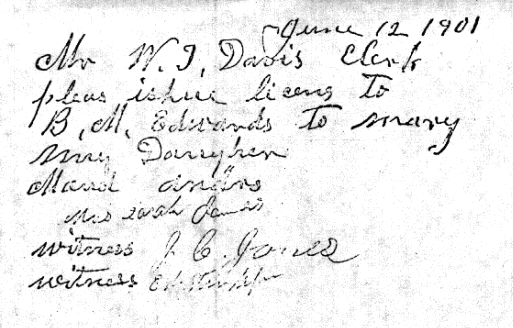 June 12 1901
Mr W. J. Davis Clerk
pleas ishue licens to
B. M. Edwards to marry
my Daugher
Maud
Mrs Sarah
witness J. C. Jones
witness